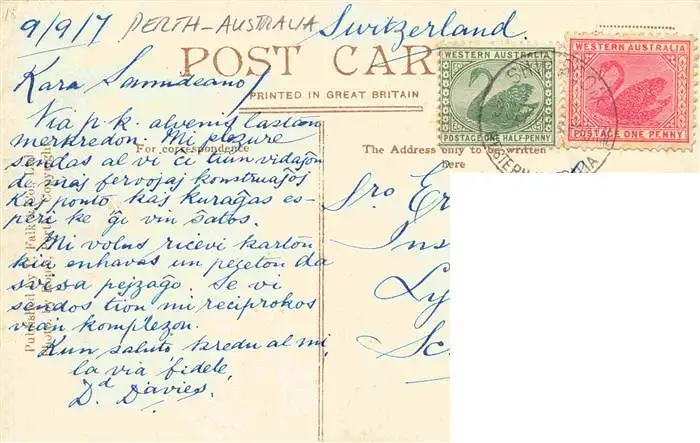 9/9/7 PERTH-AUSTRALIA Switzerland.
POST CAR
PRINTED IN GREAT BRITAIN
WESTERN AUSTRALIA
POSTAGE ONE HALF-PENNY
WESTERN AUSTRALIA
POSTAGE ONE PENNY
Kara Samideano/
Via p.k. alvenis lastan
merkredon. Mi plezure
sendas al vi ĉi tiun vidaĵon
de niaj fervojaj konstruaĵoj
kaj ponto kaj kuraĝas es-
peri ke ĝi vin ŝatos.
Mi volus ricevi karton
kia enhavas un peceton da
svisa pejzaĝo. Se vi
sendos tion mi reciprokos
vian komplezon.
Kun saluto kredu al mi
la via fidele,
Dd Davies.
For correspondence
The Address only to be written
here
Sro Er
Ins
Ly
Sc
Published by Falk